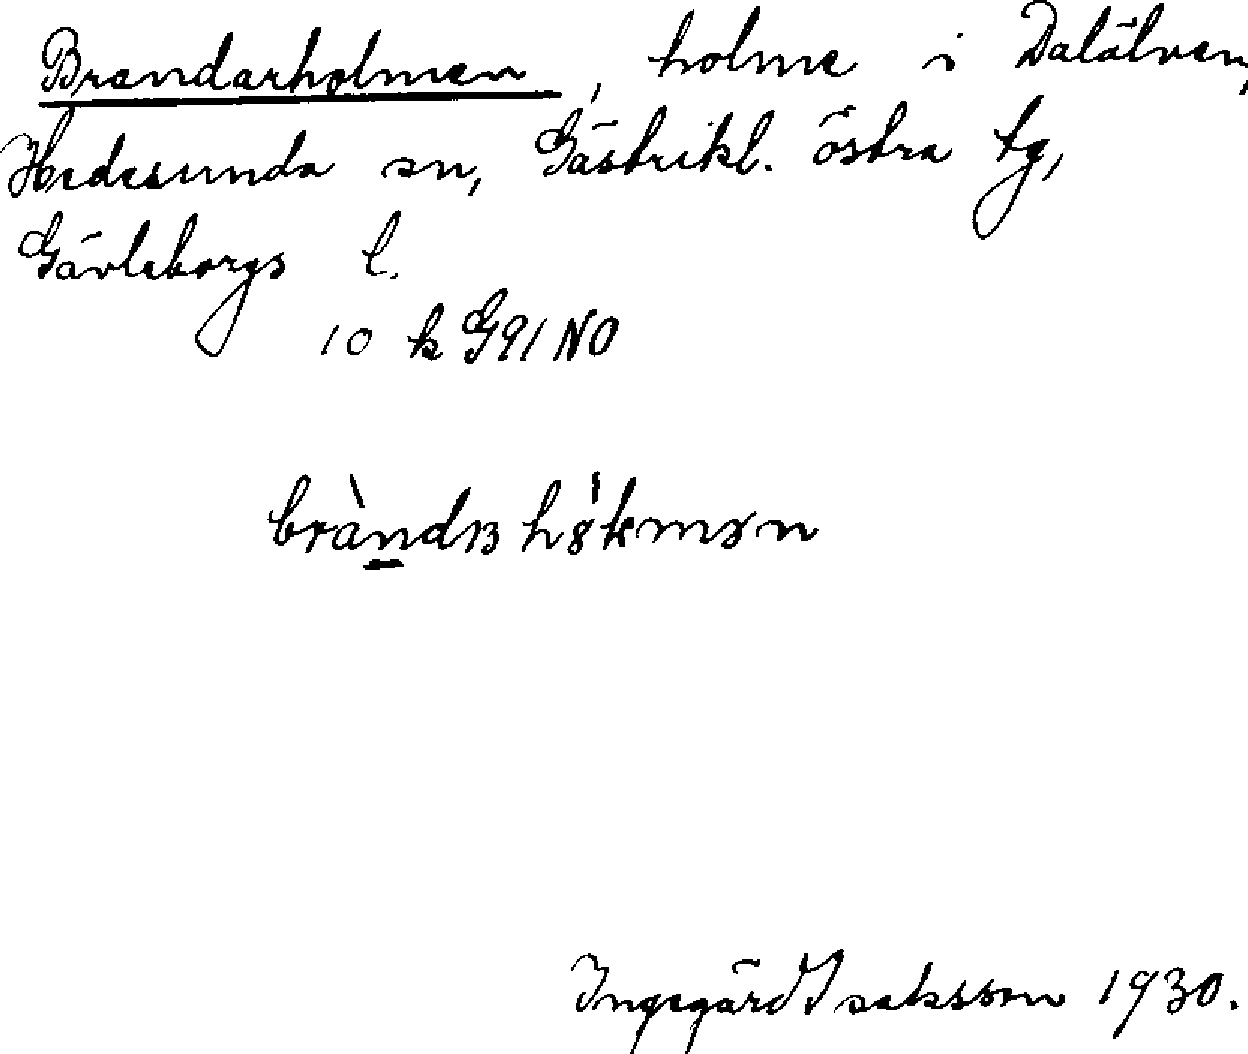 Brandarholmen, holme i Dalälven,
Hedesunda sn, Gästrikl. östra tg,
Gävleborgs l.
10 k G91 NO
Ingegärd Isaksson 1930.